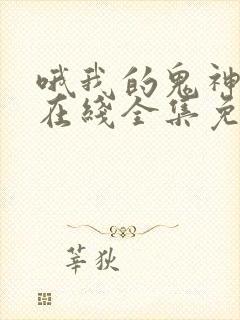 哦我的鬼神
在线全集免
莘狄